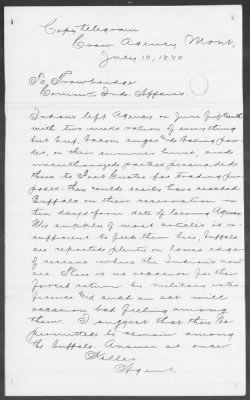 Copy telegram
Crow Agency Mont,
July 10, 1880
To, Trowbridge
Comm Ind. Affairs
Indians left Agency on June fifteenth
with two weeks ration of everything
but beef, bacon sugar and baking pow-
der, on their summer hunt, and
unauthorized parties persuaded
them to Fort Custer for trading pur-
poses. they could easily have reached
Buffalo on their reservation in
ten days from date of leaving Agency.
My supplies of most articles is in-
sufficient to feed them here, buffalo
are reported plenty on lower edge
of reserve where the Indians now
are. There is no occasion for their
forced return by military inter-
ference and such an act will
occasion bad feeling among
them. I suggest that they be
permitted to remain among
the buffalo. Answer at once
Keller
Agent